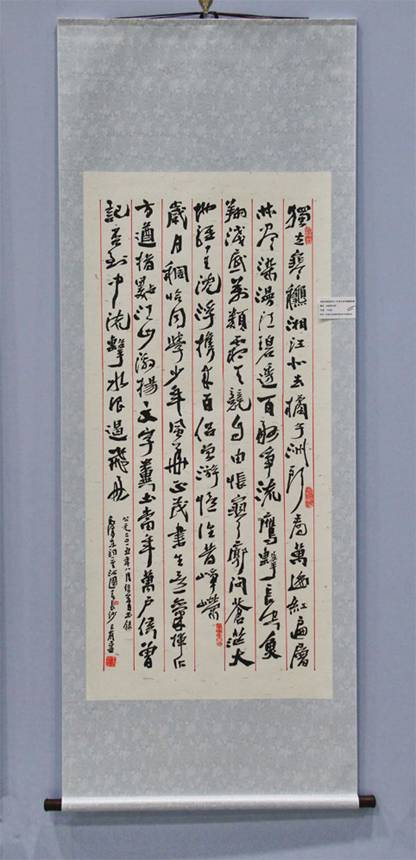 獨立寒龝湘江北去橘子洲頭看萬山紅遍層
林盡染漫江碧透百舸爭流鷹擊長空魚
翔淺底萬類霜天競自由悵寥廓問蒼茫大
地誰主沈浮攜來百侶曾游憶往昔崢嶸
歲月稠恰同學少年風華正茂書生意氣揮斥
方遒指點江山激揚文字糞土當年萬戶侯曾
記否到中流擊水浪遏飛舟
公元二〇一五年八月
毛澤東詞沁園春長沙